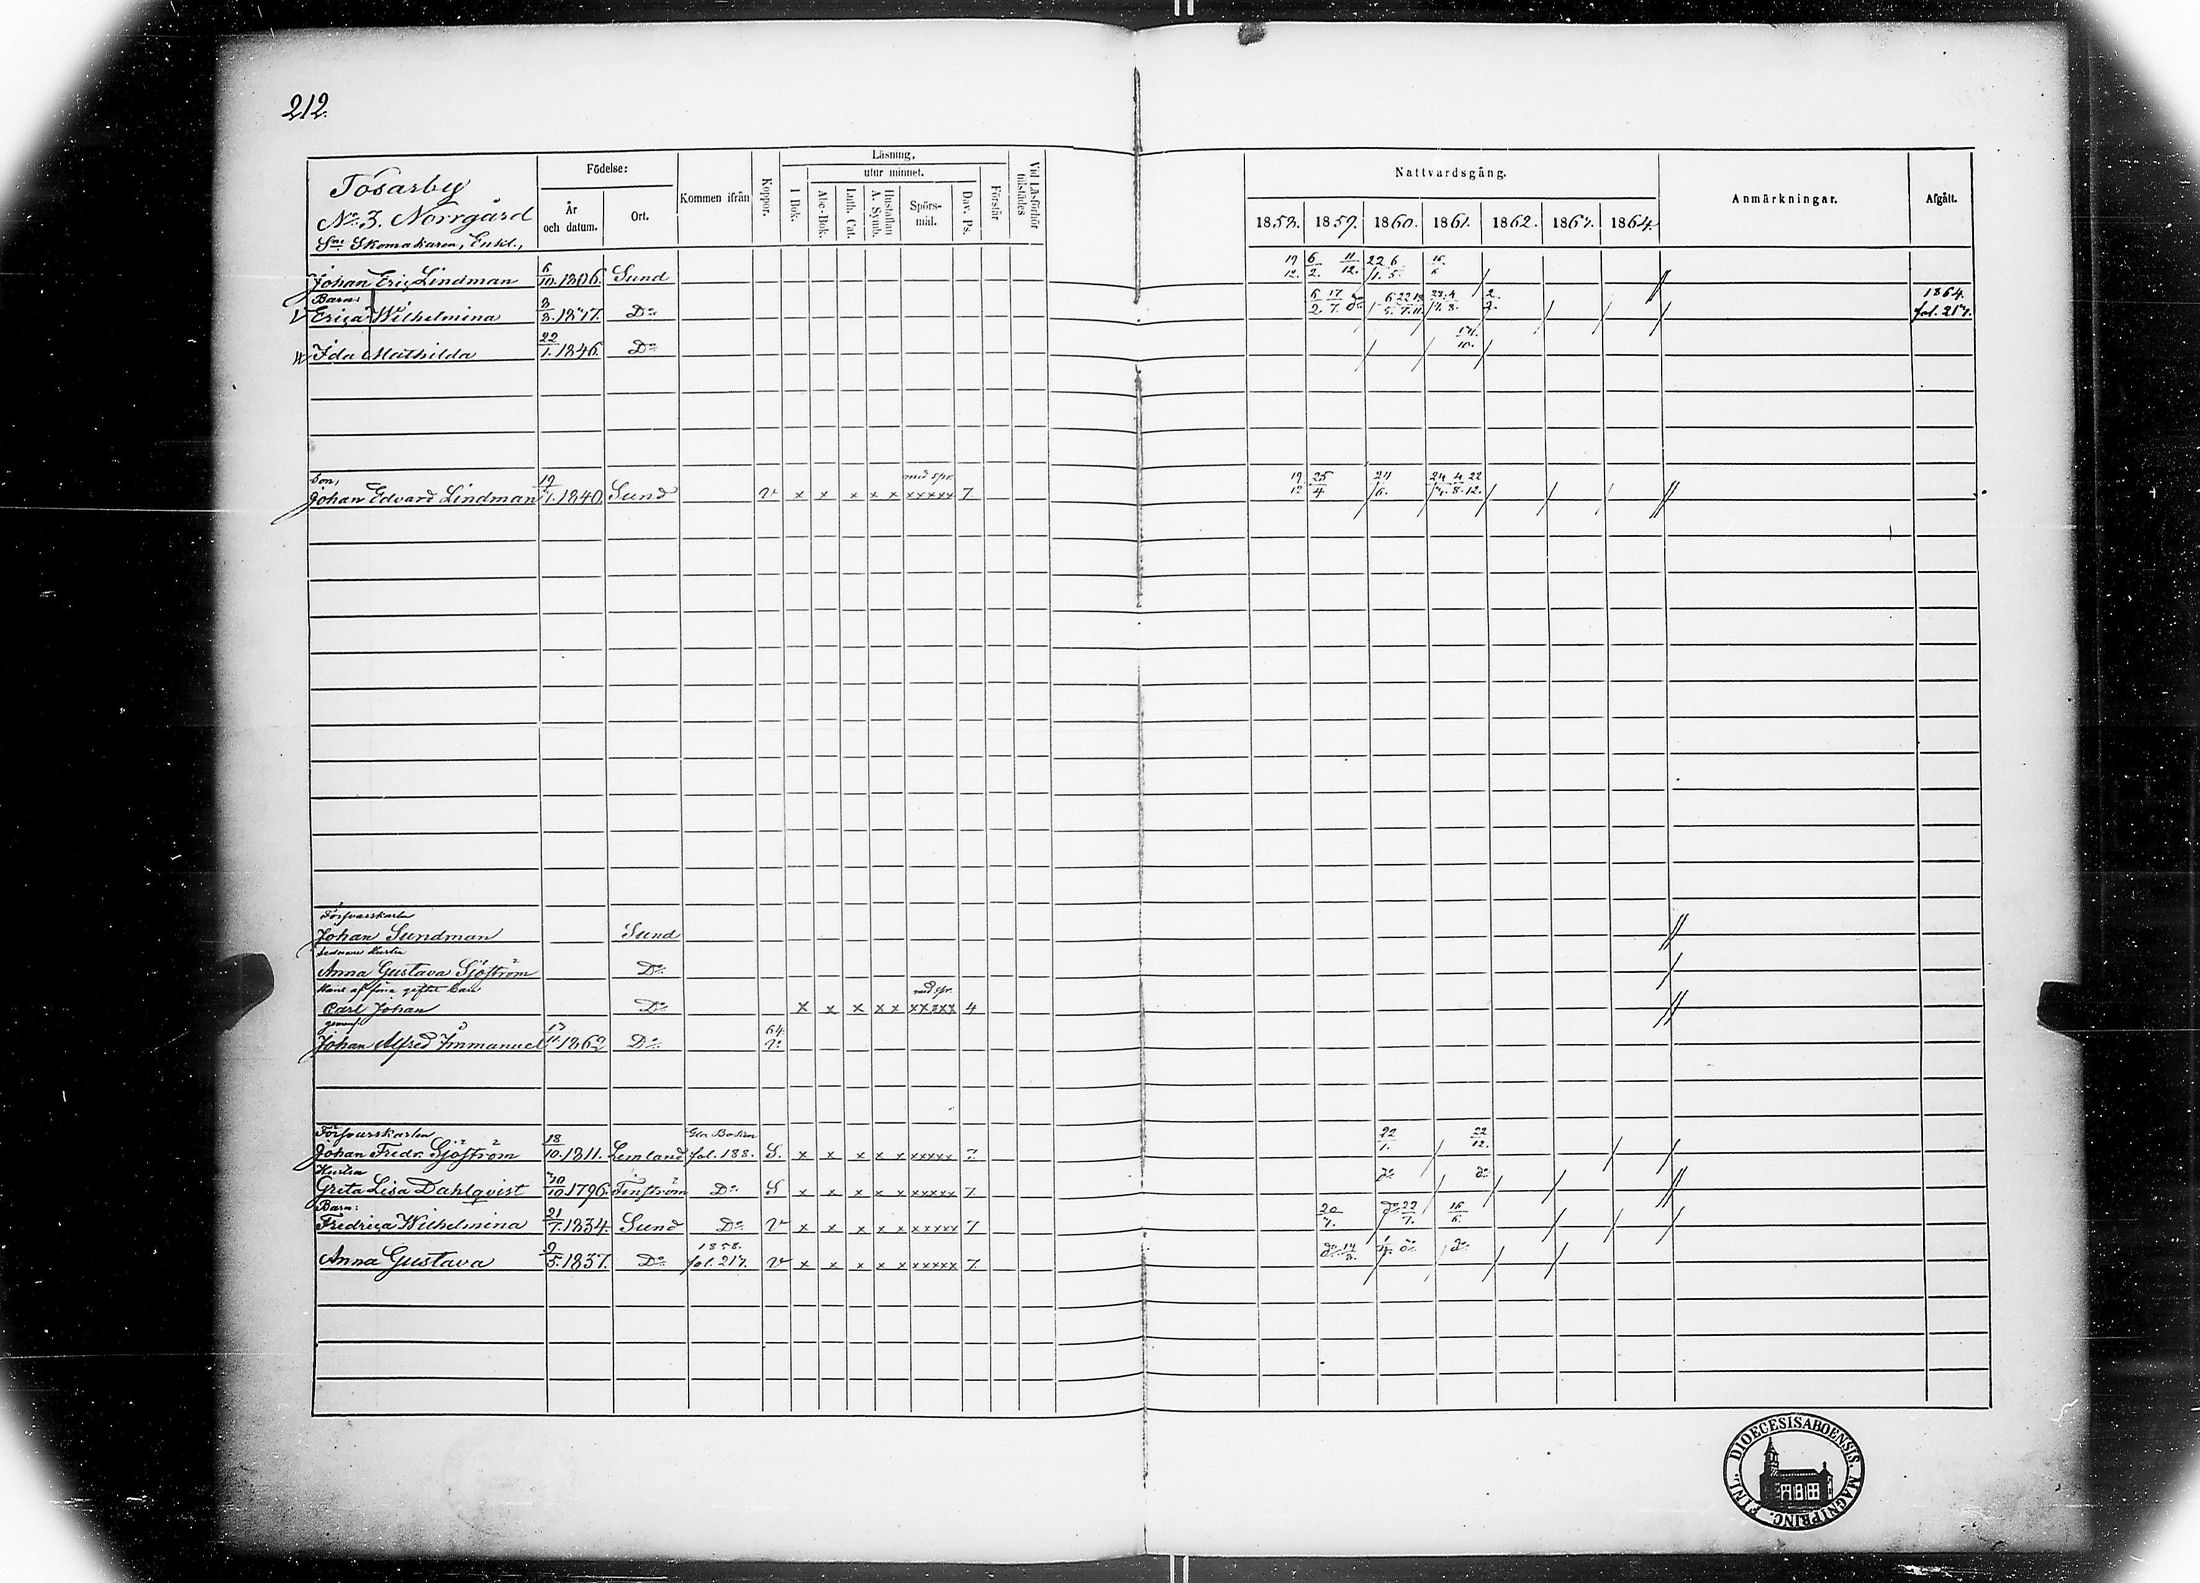 212.
Tosarby
No 3. Norrgård
Sne Skomakaren, Enkl.,
Födelse:
År och datum.
Ort.
Kommen ifrån
Koppor.
Läsning,
I Bok.
utur minnet.
Abc-Bok.
Luth. Cat.
Hustaflan A. Symb.
Spörsmål.
Dav. Ps.
Förstår
Vid Läsförhör tillstädes
Nattvardsgång.
1858. 1859. 1860. 1861. 1862. 1863. 1864.
Anmärkningar.
Afgått.
Johan Eric Lindman 6/10 1806. Sund 19/12. 6/2. 11/12. 22/1. 6/5. 16/6
Barn:
Erica Wilhelmina 3/3. 1847. Do 6/2. 17/7. do 1864. fol. 217.
Ida Mathilda 22/1. 1846. Do 10.
Son,
med spr.
Johan Edvard Lindman 19/1. 1840. Sund v x x x x x xxxxx 7. 19/12 25/4 24/6. 24 4/8. 22/12.
Försvarskarlen
Johan Sundman Sund
Anna Gustava Sjöström Do
Hans af förra giftet barn
med spr.
Carl Johan Do x x x x x xxxxx 4
Johan Alfred Immanuel 13/11 1862 Do 64 v.
Försvarskarlen
Johan Fredr. Sjöström 18/10. 1811. Lemland fol. 188. S. x x x x x xxxxx 7. 22/1. 22/12.
Hustru
Greta Lisa Dahlqvist 30/10 1796. Finström Do S x x x x x xxxxx 7. do do
Barn:
Fredrica Wilhelmina 21/7. 1834. Sund Do v x x x x x xxxxx 7 20/7. do 22/7. 16/6.
Anna Gustava 9/5. 1837. Do 1858. fol. 217. v x x x x x xxxxx 7. do 14/8. do do
FINL. DIOECESIS ABOENSIS. MAGNI PRINC.